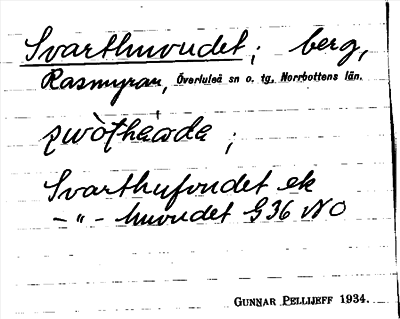 Svarthuvudet; berg,
Rasmyran, Överluleå sn o. tg. Norrbottens län.
;
Svarthufvudet ek
– " – huvudet G36 NO
GUNNAR PELLIJEFF 1934.